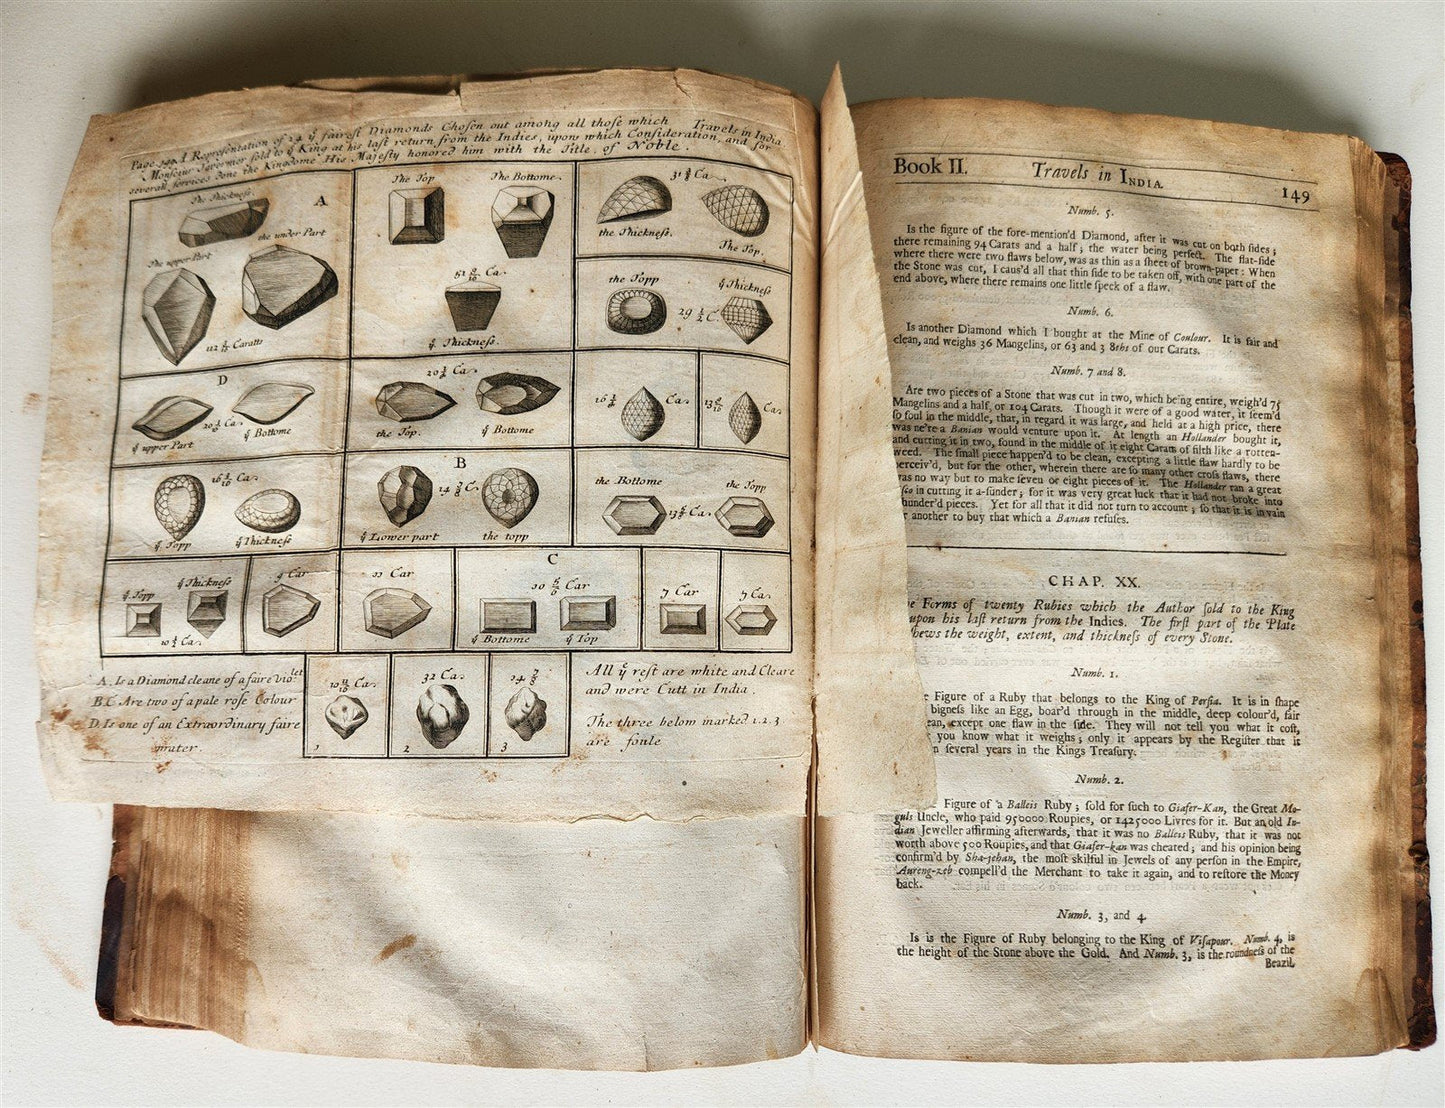 Page 149 A Representation of 24 yͤ fairest Diamonds Chosen out among all those which Travels in India
Monsieur Tavernier sold to yͤ King at his last return from the Indies, upon which Consideration, and for
several services done the Kingdome His Majesty honored him with the Title of Noble.
The Thickness.
A
the under Part
The upper Part
112 3/16 Caratts
The Top
The Bottome
51 9/16 Ca.
yͤ Thickness.
31 Ca.
the Thickness.
The Top.
the Topp
yͤ Thickness
29 1/2 C.
D
Ca.
yͤ upper Part
yͤ Bottome
20 Ca.
the Top.
yͤ Bottome
16 Ca.
13 Ca.
16 Ca.
yͤ Topp
yͤ Thickness
B
14 Ca.
yͤ Lower part
the topp
the Bottome
the Topp
13 Ca.
yͤ Topp
yͤ Thickness
10 Ca.
9 Car
11 Car
C
10 Car
yͤ Bottome
yͤ Top
7 Car
7 Ca.
A. Is a Diamond cleane of a faire violet
B.C Are two of a pale rose Colour
D. Is one of an Extraordinary faire
water.
10 Ca.
1
32 Ca.
2
3
All yͤ rest are white and Cleare
and were Cutt in India.
The three below marked 1.2.3
are foule
Book II. Travels in INDIA. 149
Numb. 5.
Is the figure of the fore-mention'd Diamond, after it was cut on both ſides;
there remaining 94 Carats and a half; the water being perfect. The flat-ſide
where there were two flaws below, was as thin as a ſheet of brown-paper: When
the Stone was cut, I caus'd all that thin ſide to be taken off, with one part of the
end above, where there remains one little ſpeck of a flaw.
Numb. 6.
Is another Diamond which I bought at the Mine of Coulour. It is fair and
clean, and weighs 36 Mangelins, or 63 and 3 8ths of our Carats.
Numb. 7 and 8.
Are two pieces of a Stone that was cut in two, which being entire, weigh'd 75
Mangelins and a half, or 104 Carats. Though it were of a good water, it ſeem'd
ſo foul in the middle, that, in regard it was large, and held at a high price, there
was ne're a Banian would venture upon it. At length an Hollander bought it,
and cutting it in two, found in the middle of it eight Carats of filth like a rotten-
weed. The ſmall piece happen'd to be clean, excepting a little flaw hardly to be
perceiv'd, but for the other, wherein there are ſo many other croſs flaws, there
was no way but to make ſeven or eight pieces of it. The Hollander ran a great
in cutting it a-ſunder; for it was very great luck that it had not broke into
hunder'd pieces. Yet for all that it did not turn to account; ſo that it is in vain
another to buy that which a Banian refuſes.
CHAP. XX.
Forms of twenty Rubies which the Author ſold to the King
upon his laſt return from the Indies. The firſt part of the Plate
ſhews the weight, extent, and thickneſs of every Stone.
Numb. 1.
Figure of a Ruby that belongs to the King of Perſia. It is in ſhape
bigneſs like an Egg, boar'd through in the middle, deep colour'd, fair
, except one flaw in the ſide. They will not tell you what it coſt,
you know what it weighs; only it appears by the Regiſter that it
ſeveral years in the Kings Treaſury.
Numb. 2.
Figure of a Balleis Ruby; ſold for ſuch to Giafer-Kan, the Great Mo-
guls Uncle, who paid 950000 Roupies, or 1425000 Livres for it. But an old In-
dian Jeweller affirming afterwards, that it was no Balleis Ruby, that it was not
worth above 500 Roupies, and that Giafer-kan was cheated; and his opinion being
confirm'd by Sha-jehan, the moſt skilful in Jewels of any perſon in the Empire,
Aureng-zeb compell'd the Merchant to take it again, and to reſtore the Money
back.
Numb. 3, and 4
Is is the Figure of Ruby belonging to the King of Viſapour. Numb. 4, is
the height of the Stone above the Gold. And Numb. 3, is the roundneſs of the
Beazil,